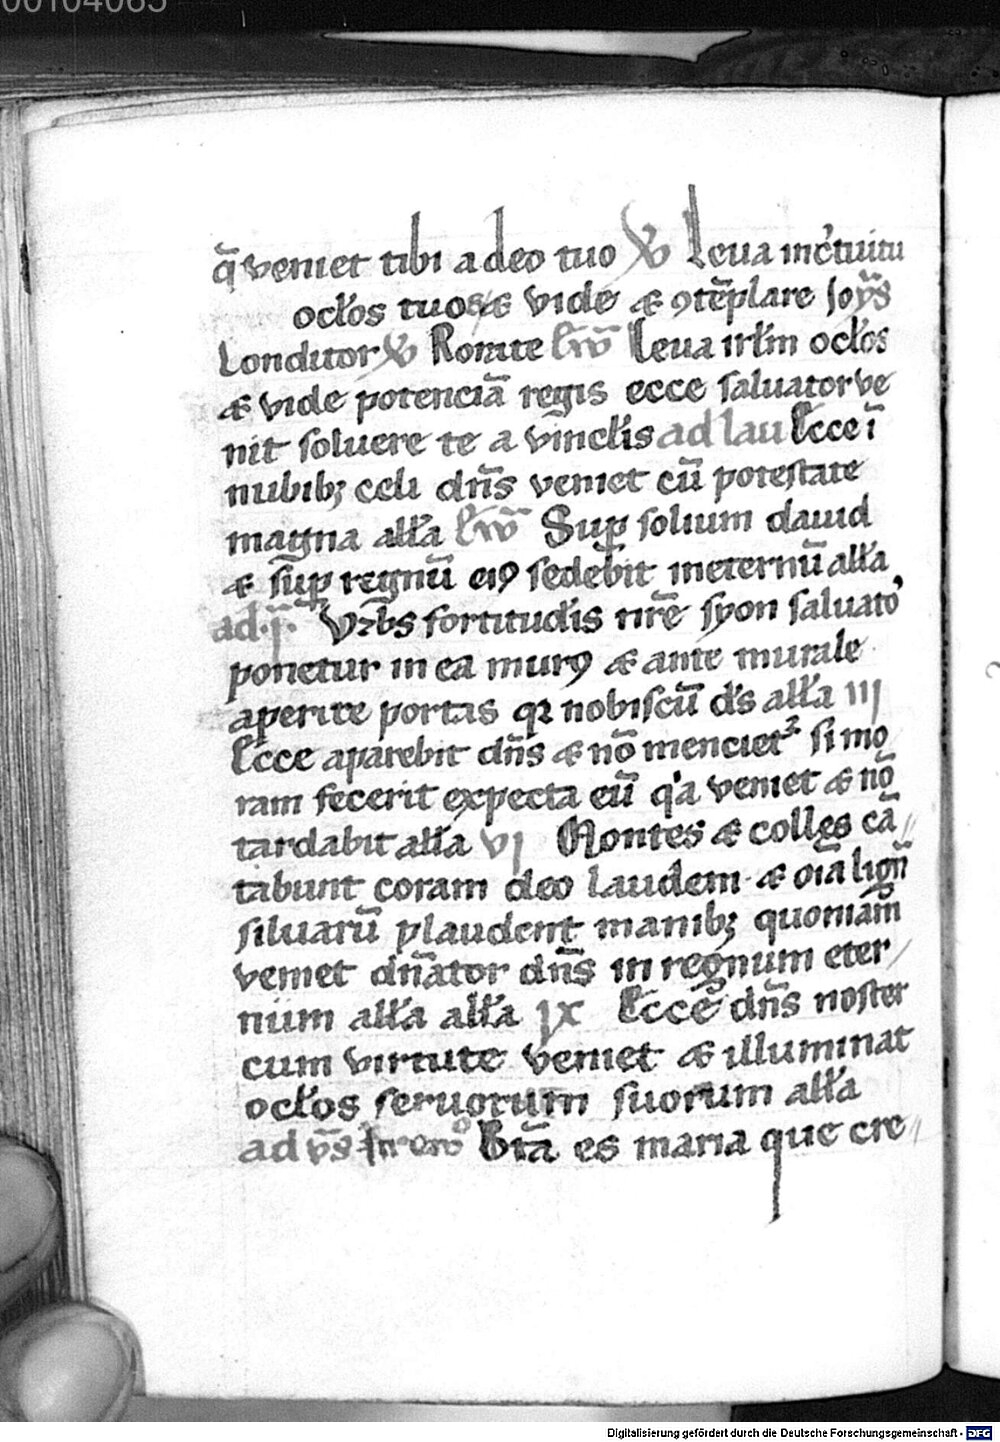 00104065
q̄ veniet tibi a deo tuo Leua in c̓cuitu
oclo̓s tuos ⁊ vide ⁊ ꝯte̅plare Joy̅s
Conditor Rorate Leua irlm̅ oclo̓s
⁊ vide potencia̅ regis ecce saluator ve
nit soluere te a vinclis ad lau Ecce i̅
nubibꝫ celi dn̅s veniet cu̅ potestate
magna all̓a Sup̱ solium dauid
⁊ sup̱ regnu̅ eiꝰ sedebit in eternu̅ all̓a
ad .j. Vrbs fortitudis nr̅e syon saluato̓
ponetur in ea murꝰ ⁊ ante murale
aperite portas qꝛ nobiscu̅ ds̓ all̓a III
Ecce aparebit dn̅s ⁊ no̅ menciet᷑ si mo
ram fecerit expecta eu̅ qͥa veniet ⁊ no̅
tardabit all̓a VI Montes ⁊ colles ca̅//
tabunt coram deo laudem ⁊ oi̅a lign̅
siluaru̅ plaudent manibꝫ quoniam
veniet dn̅ator dn̅s in regnum eter/
num all̓a all̓a IX Ecce dn̅s noster
cum virtute veniet ⁊ illuminat
oclo̓s seruorum suorum all̓a
ad Bt̅a es maria que cre//
Digitalisierung gefördert durch die Deutsche Forschungsgemeinschaft - DFG